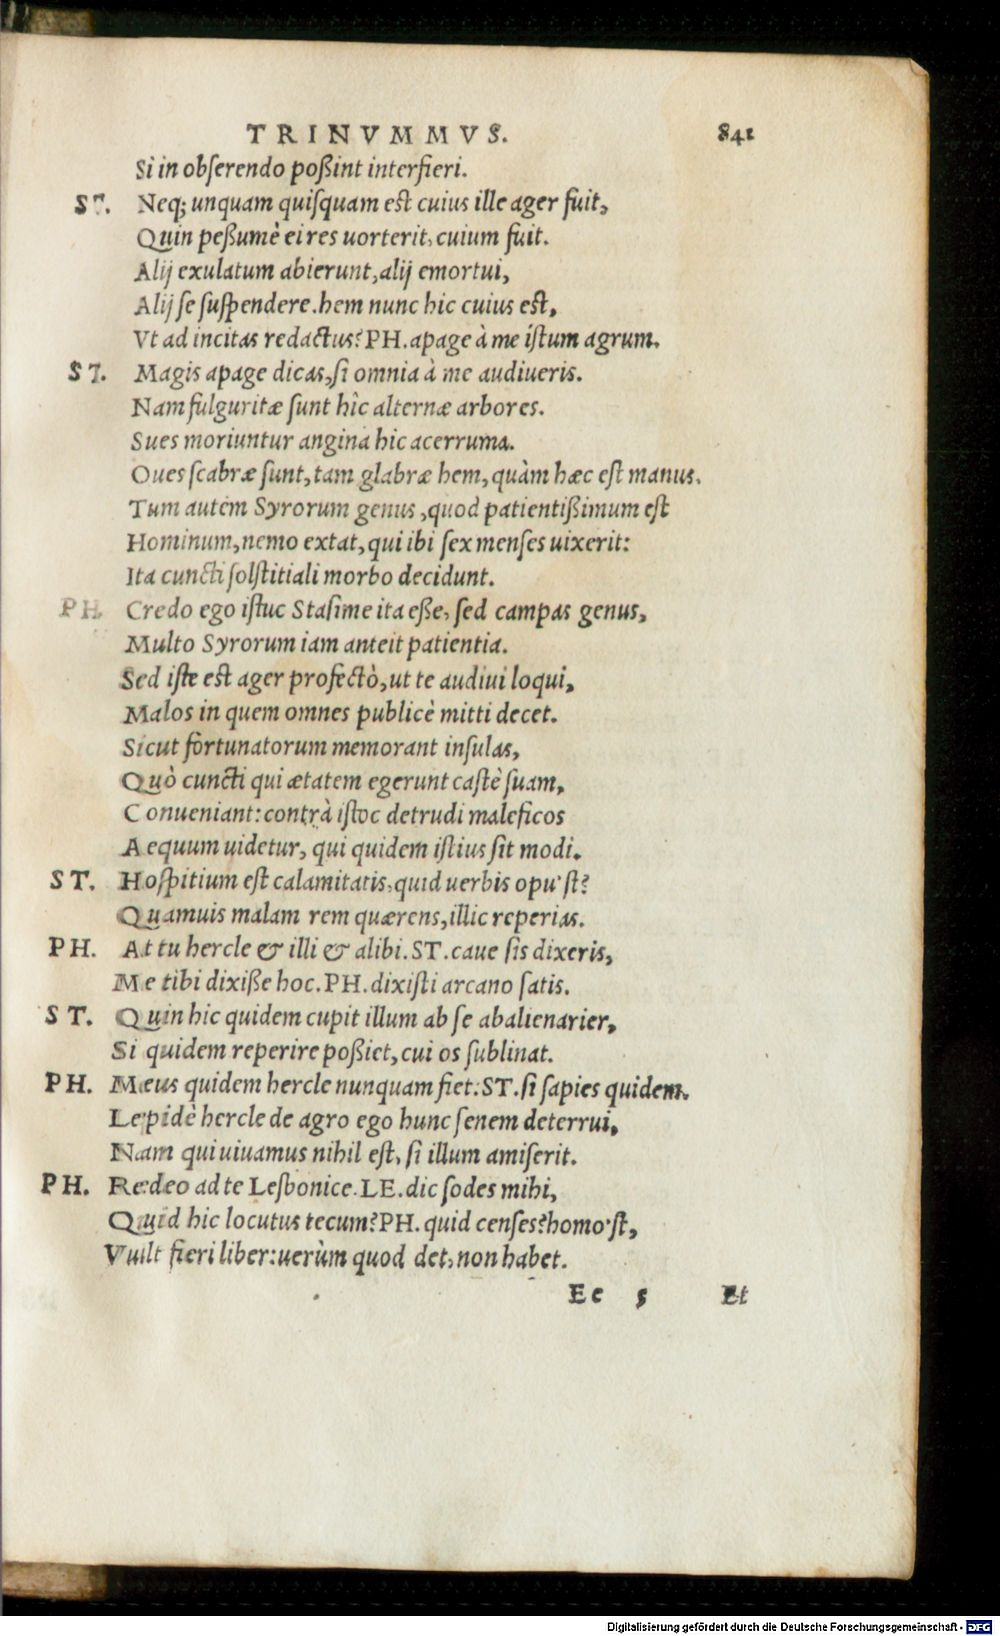 TRINVMMVS. 841
Si in obſerendo poßint interfieri.
ST. Neq; unquam quiſquam eſt cuius ille ager fuit,
Quin peßumè ei res uorterit, cuium fuit.
Alij exulatum abierunt, alij emortui,
Alij ſe ſuſpendere. hem nunc hic cuius eſt,
Vt ad incitas redactus? PH. apage à me iſtum agrum.
ST. Magis apage dicas, ſi omnia à me audiueris.
Nam fulguritæ ſunt hîc alternæ arbores.
Sues moriuntur angina hic acerruma.
Oues ſcabræ ſunt, tam glabræ hem, quàm hæc eſt manus.
Tum autem Syrorum genus, quod patientißimum eſt
Hominum, nemo extat, qui ibi ſex menſes uixerit:
Ita cuncti ſolſtitiali morbo decidunt.
PH. Credo ego iſtuc Staſime ita eße, ſed campas genus,
Multo Syrorum iam anteit patientia.
Sed iſte eſt ager profectò, ut te audiui loqui,
Malos in quem omnes publicè mitti decet.
Sicut fortunatorum memorant inſulas,
Quò cuncti qui ætatem egerunt caſtè ſuam,
Conueniant: contrà iſtoc detrudi maleficos
Aequum uidetur, qui quidem iſtius ſit modi.
ST. Hoſpitium eſt calamitatis, quid uerbis opu'ſt?
Quamuis malam rem quærens, illic reperias.
PH. At tu hercle & illi & alibi. ST. caue ſis dixeris,
Me tibi dixiße hoc. PH. dixiſti arcano ſatis.
ST. Quin hic quidem cupit illum ab ſe abalienarier,
Si quidem reperire poßiet, cui os ſublinat.
PH. Meus quidem hercle nunquam fiet. ST. ſi ſapies quidem.
Lepidè hercle de agro ego hunc ſenem deterrui,
Nam qui uiuamus nihil eſt, ſi illum amiſerit.
PH. Redeo ad te Lesbonice. LE. dic ſodes mihi,
Quid hic locutus tecum? PH. quid cenſes? homo'ſt,
Vult fieri liber: uerùm quod det, non habet.
Ee 5 Et
Digitalisierung gefördert durch die Deutsche Forschungsgemeinschaft - DFG